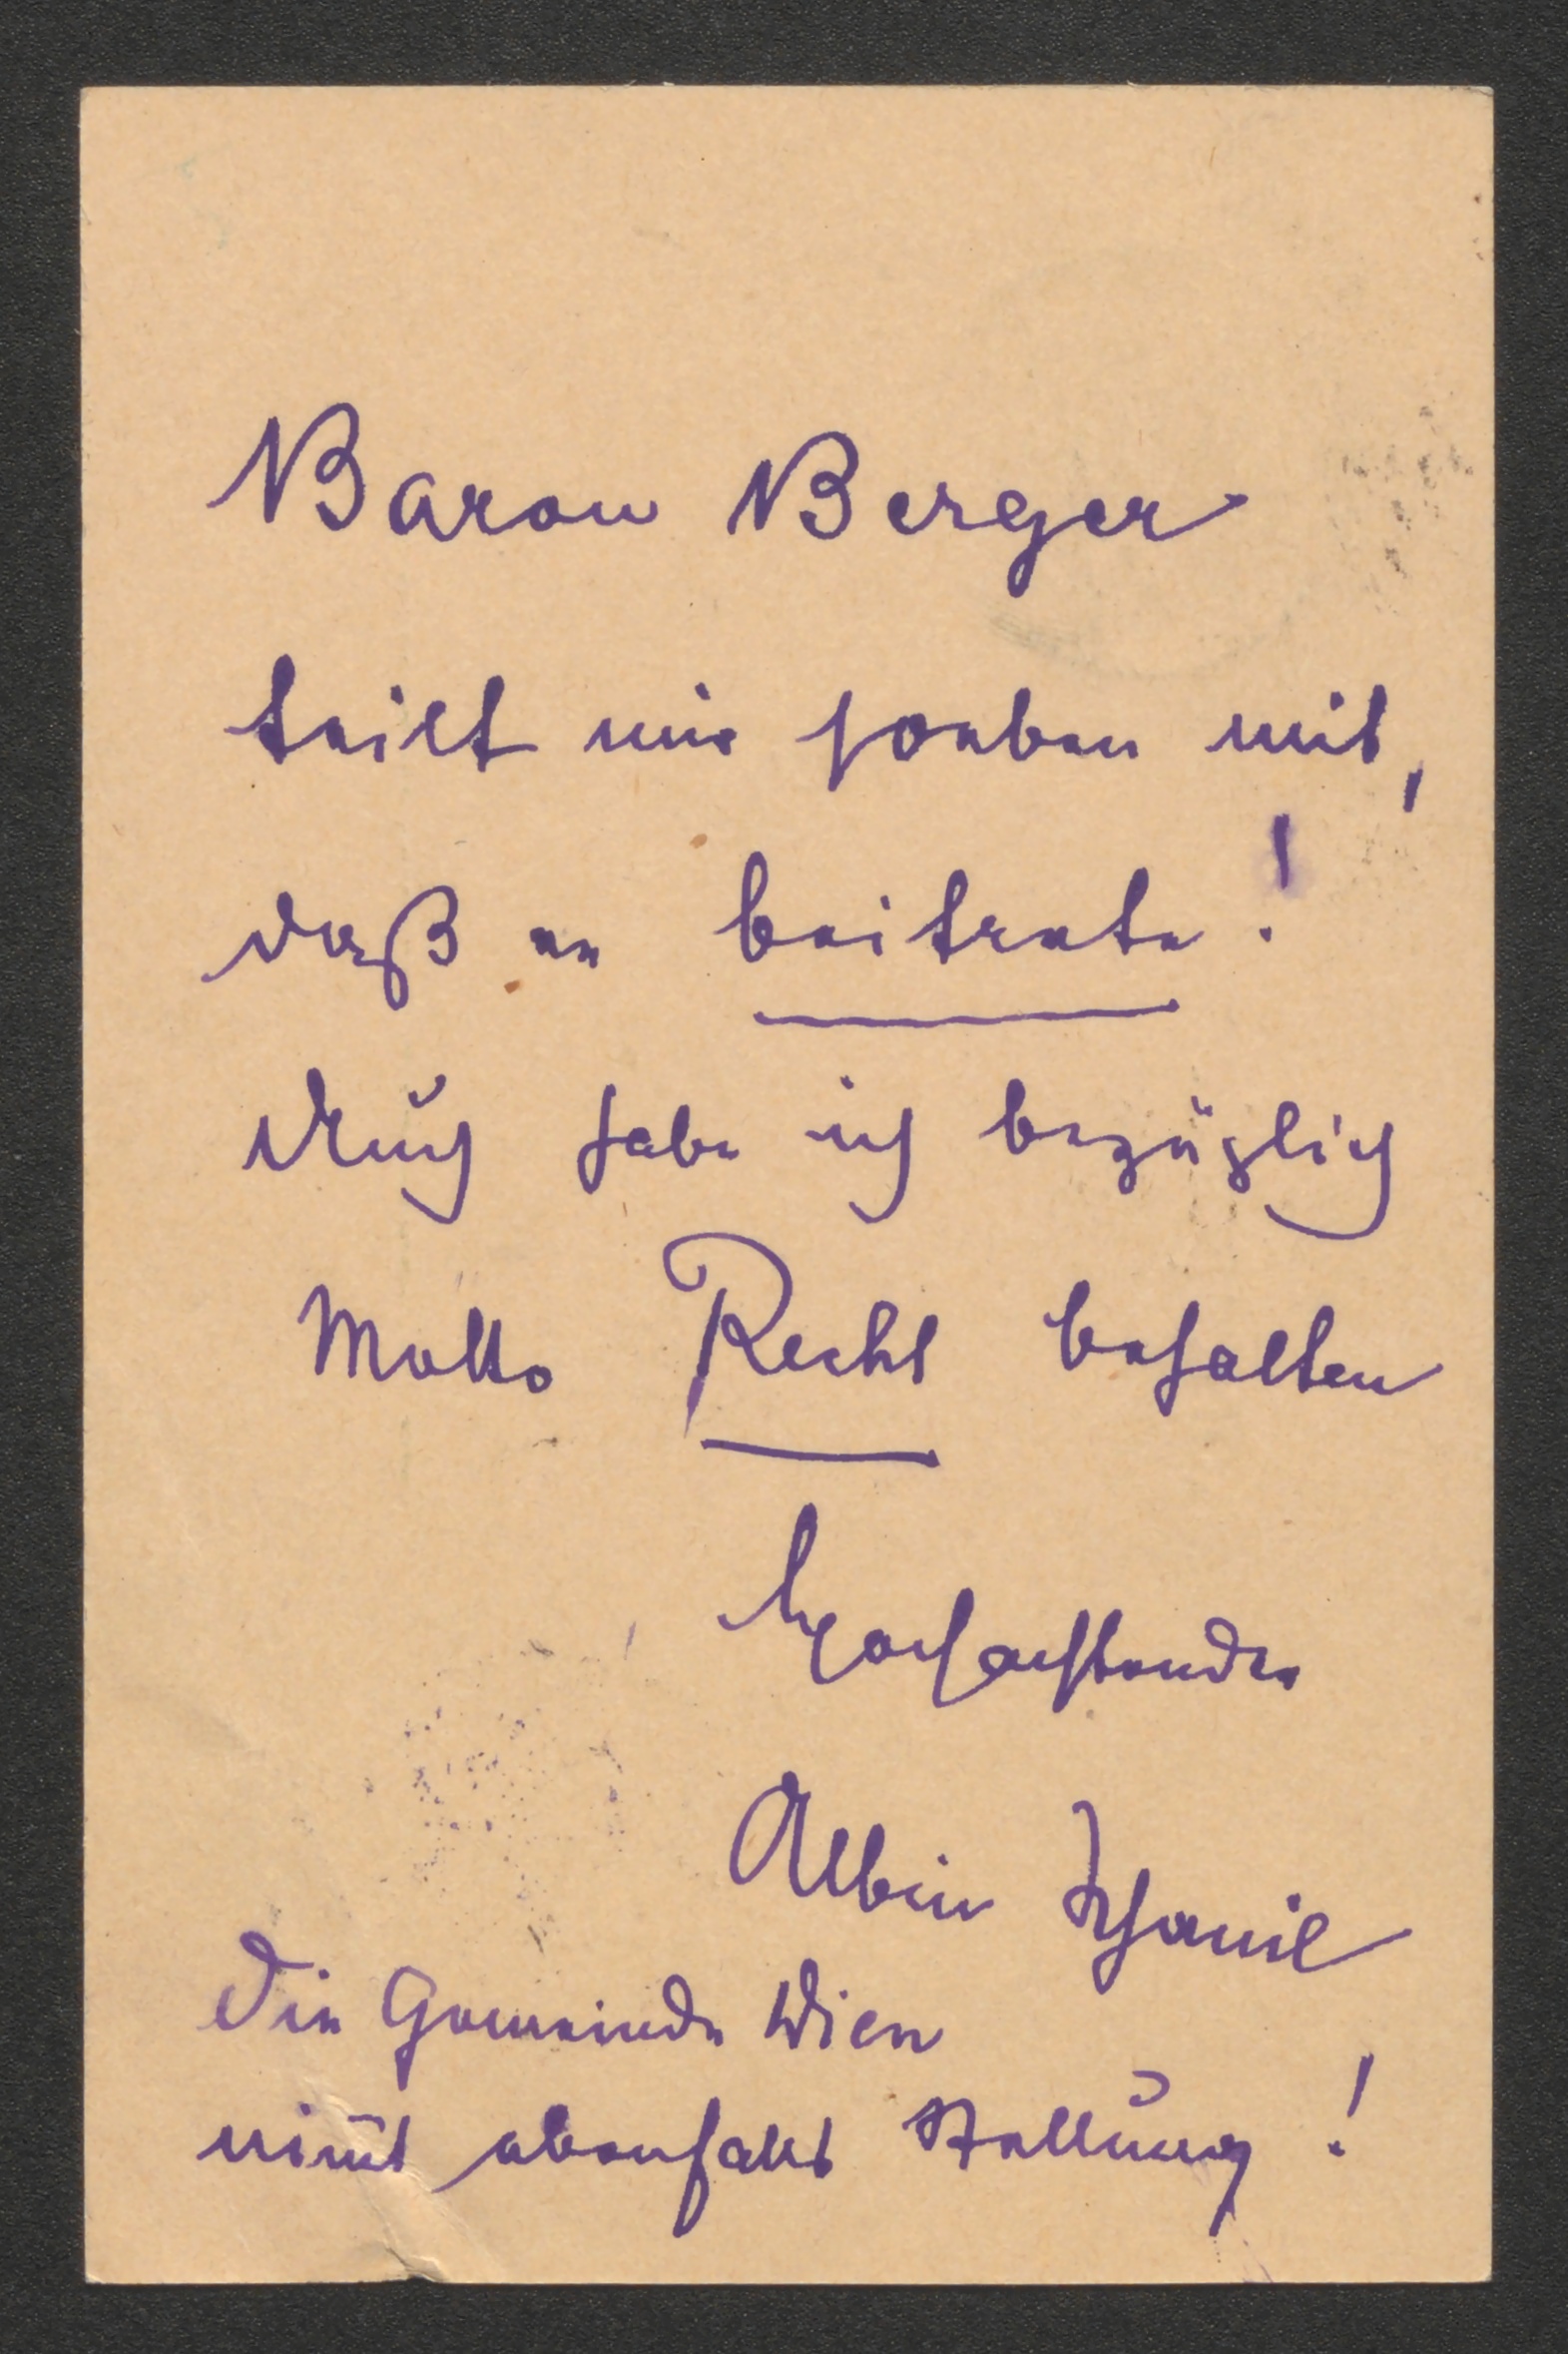 Baron Berger
teilt mir soeben mit,
daß er beitrete!
Auch habe ich bezüglich
Motto Recht behalten
Albin
Die Gemeinde Wien
nim̅t ebenfalls Stellung!